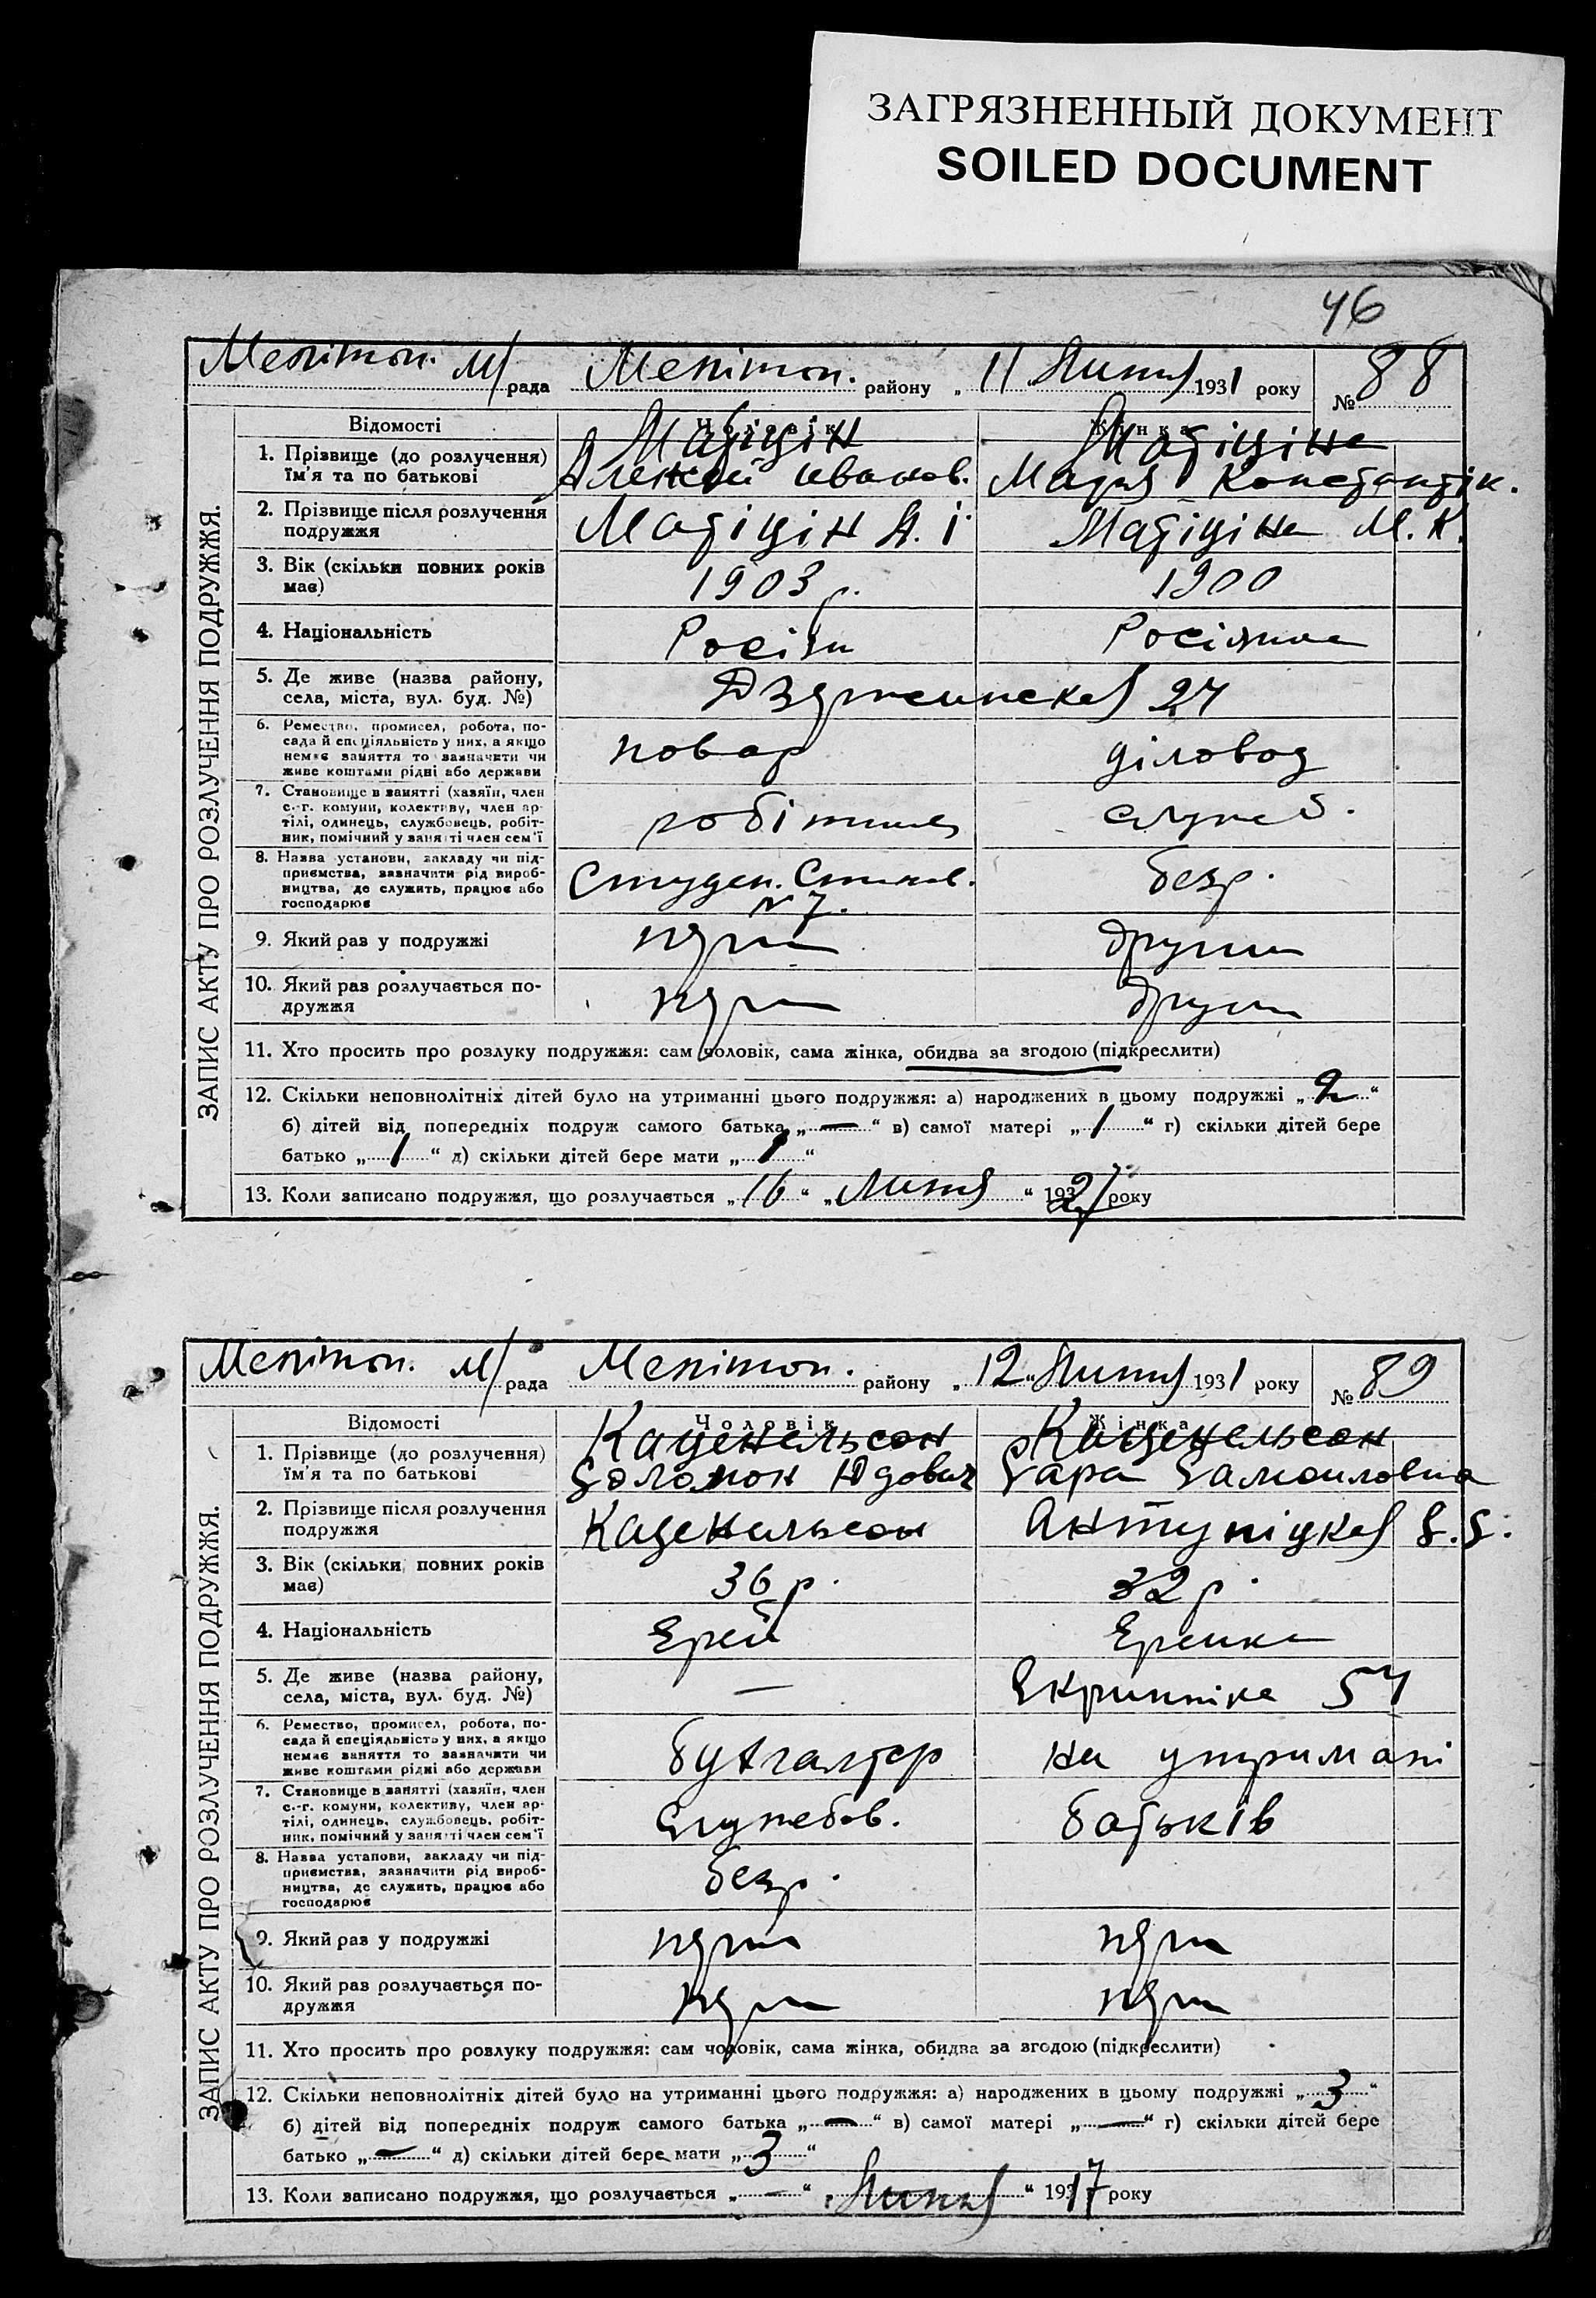 ЗАГРЯЗНЕННЫЙ ДОКУМЕНТ
SOILED DOCUMENT
46
ЗАПИС АКТУ ПРО РОЗЛУЧЕННЯ ПОДРУЖЖЯ.
Мелітоп. м/рада Мелітоп. району „ 11 1931 року № 88
Відомості Чоловік Жінка
1. Прізвище (до розлучення) їм'я та по батькові
Алексей Иванов. Мария Константін.
2. Прізвище після розлучення подружжя
А. І М. К.
3. Вік (скільки повних років має) 1903 р. 1900
4. Національність Росіян Росіянка
5. Де живе (назва району, села, міста, вул. буд. №) Дзержинская 27
6. Ремество, промисел, робота, по-
сада й спеціяльність у них, а якщо
немає заняття то зазначити чи
живе коштами рідні або держави
повар діловод
7. Становище в занятті (хазяїн, член
с.-г. комуни, колективу, член ар-
тілі, одинець, службовець, робіт-
ник, помічний у занятті член сем'ї
робітник служб.
8. Назва установи, закладу чи під-
приємства, зазначити рід вироб-
ництва, де служить, працює або
господарює
Студен. Столов. №7. безр.
9. Який раз у подружжі перш други
10. Який раз розлучається по-
дружжя перш други
11. Хто просить про розлуку подружжя: сам чоловік, сама жінка, обидва за згодою (підкреслити)
12. Скільки неповнолітніх дітей було на утриманні цього подружжя: а) народжених в цьому подружжі „ 2 “
б) дітей від попередніх подруж самого батька „ — “ в) самої матері „ 1 “ г) скільки дітей бере
батько „ 1 “ д) скільки дітей бере мати „ 1 “
13. Коли записано подружжя, що розлучається „ 16 “ „ “ 1927 року
ЗАПИС АКТУ ПРО РОЗЛУЧЕННЯ ПОДРУЖЖЯ.
Мелітоп. м/рада Мелітоп. району „ 12 “ 1931 року № 89
Відомості Чоловік Жінка
Каценельсон Каценельсон
1. Прізвище (до розлучення) їм'я та по батькові
Соломон Юдович Сара Самоиловна
2. Прізвище після розлучення подружжя
Каценельсон С.С.
3. Вік (скільки повних років має) 36 р. 32 р.
4. Національність Еврей Еврейка
5. Де живе (назва району, села, міста, вул. буд. №) — Скрипніка 57
6. Ремество, промисел, робота, по-
сада й спеціяльність у них, а якщо
немає заняття то зазначити чи
живе коштами рідні або держави
бухгалтер на утримані
7. Становище в занятті (хазяїн, член
с.-г. комуни, колективу, член ар-
тілі, одинець, службовець, робіт-
ник, помічний у занятті член сем'ї
Служебов. батьків
8. Назва установи, закладу чи під-
приємства, зазначити рід вироб-
ництва, де служить, працює або
господарює
безр.
9. Який раз у подружжі перш перш
10. Який раз розлучається по-
дружжя перш перш
11. Хто просить про розлуку подружжя: сам чоловік, сама жінка, обидва за згодою (підкреслити)
12. Скільки неповнолітніх дітей було на утриманні цього подружжя: а) народжених в цьому подружжі „ 3 “
б) дітей від попередніх подруж самого батька „ — “ в) самої матері „ — “ г) скільки дітей бере
батько „ — “ д) скільки дітей бере мати „ 3 “
13. Коли записано подружжя, що розлучається „ — “ „ “ 1917 року